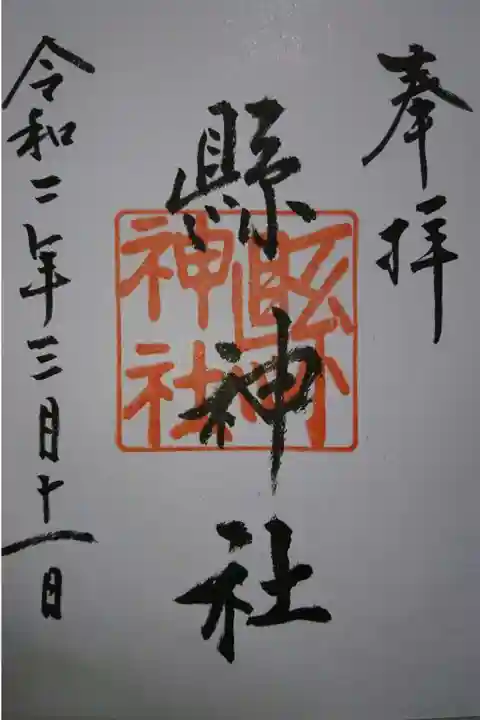 奉拝
縣神社
縣
神社
令和二年三月十一日